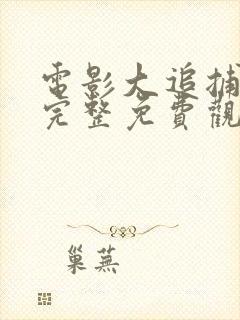 電影大追捕
完整免費觀
巢蕪